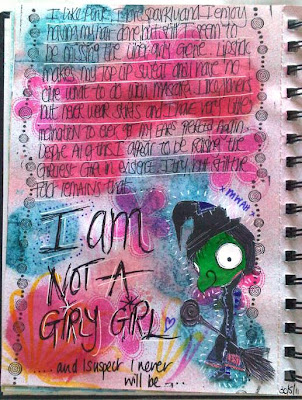 I like Pink, I like sparkly and I enjoy
having my hair done but still I seem to
be missing the uber girly gene. Lipstick
makes my top lip sweat and I have no
clue what to do with mascara. I like
but never wear skirts and I have very little
motivation to get my ears pierced again.
Despite all of this I appear to be raising the
Girliest Girl in existence. I try but still the
fact remains that...
I am
NOT A
GIRLY GIRL
....and I suspect I never
will be....
MWAH
30/5/11